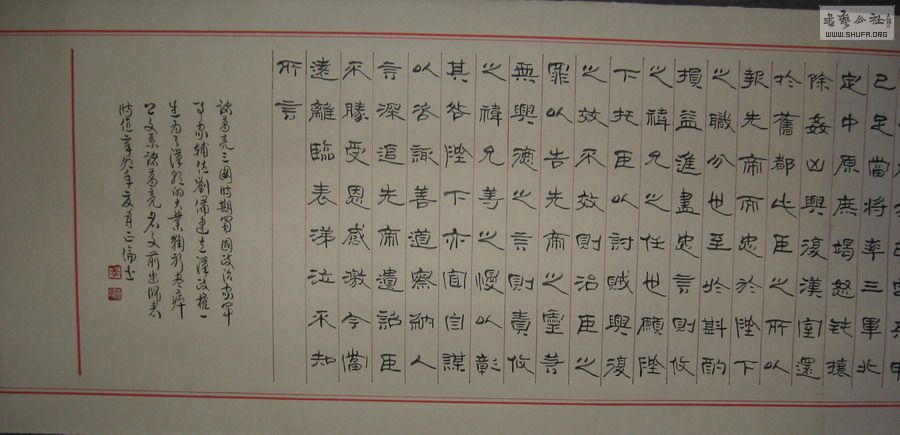 已足當將率三軍北
定中原庶竭怒鈍攘
除姦凶興復漢室還
於舊都此臣之所以
報先帝而忠於陛下
之職分也至於斟酌
損益進盡忠言則攸
之禕允之任也願陛
下托臣以討賊興復
之效不效則治臣之
罪以告先帝之靈若
無興德之言則責攸
之禕允等之慢以彰
其咎陛下亦宜自謀
以咨諏善道察納人
言深追先帝遺詔臣
不勝受恩感激今當
遠離臨表涕泣不知
所言
諸葛亮三國時期蜀國政治家軍
事家輔佐劉備建立漢政權一
生為了漢朝的大業鞠躬盡瘁
文系諸葛亮名文前出師表
時值辛卯年夏月正倫書
書藝公社
WWW.SHUFA.ORG